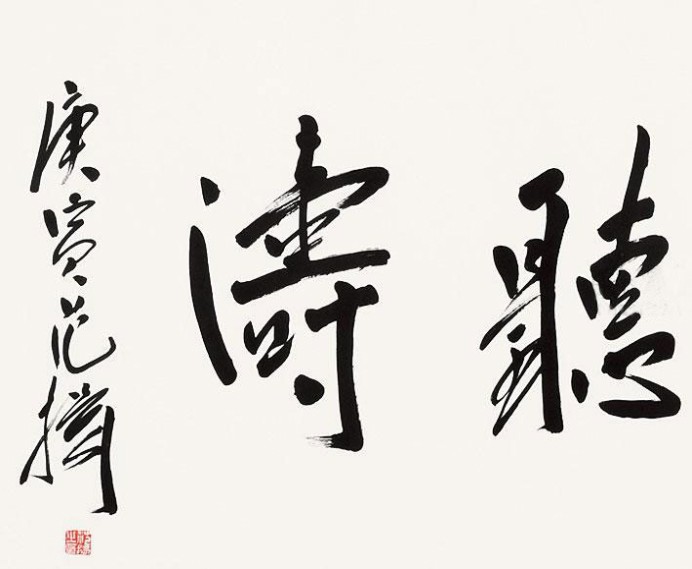 聽濤
庚寅范撝